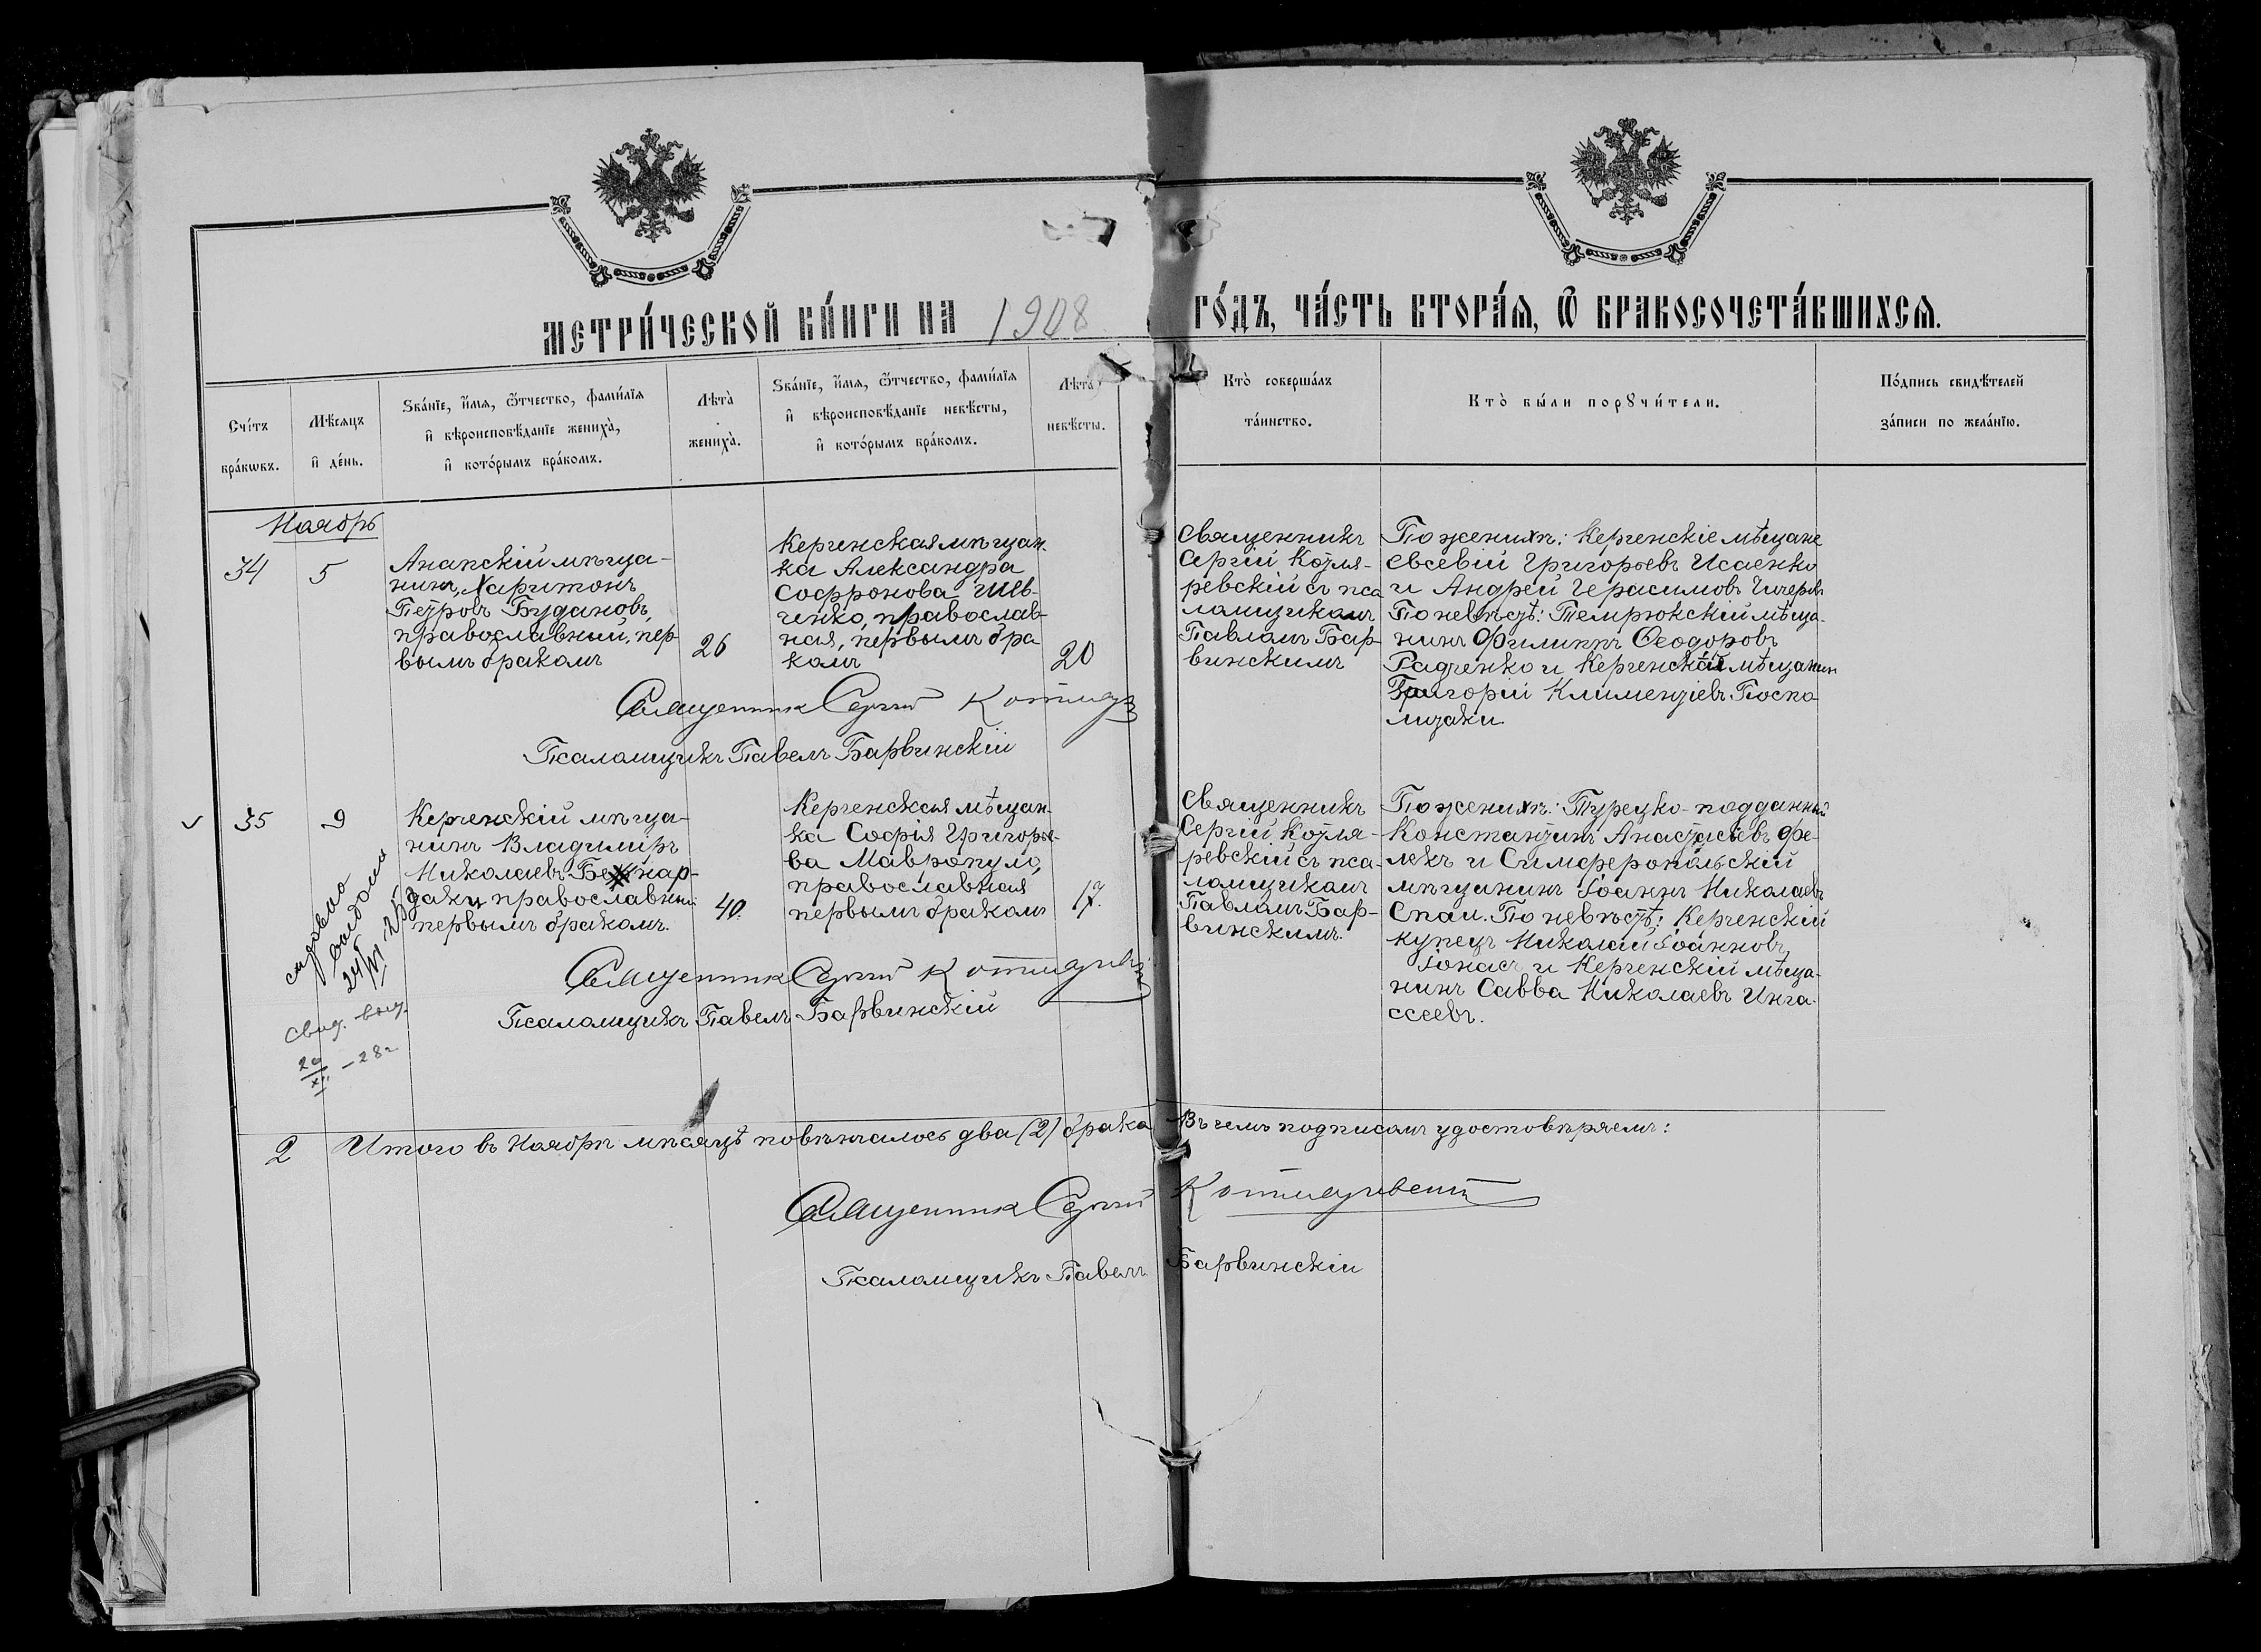 МЕТРИ́ЧЕСКОЙ КНИ́ГИ НА 1908 ГО́ДЪ, ЧА́СТЬ ВТОРА́Я, Ѿ БРАКОСОЧЕТА́ВШИХСЯ.
Сче́тъ бра́кѡвъ.
Мѣ́сяцъ и҆ де́нь.
Зва́нїе, и҆́мя, ѻ҆́тчество, фами́лїя
и҆ вѣроисповѣ́данїе жениха̀,
и҆ кото́рымъ бра́комъ.
Лѣта̀
жениха̀.
Зва́нїе, и҆́мя, ѻ҆́тчество, фами́лїя
и҆ вѣроисповѣ́данїе невѣ́сты,
и҆ кото́рымъ бра́комъ.
Лѣта̀
невѣ́сты.
Кто̀ соверша́лъ
та́инство.
Кто̀ бы́ли порꙋчи́тели.
По́дпись свидѣ́телей
за́писи по жела́нїю.
Ноябрь
34
5
Анапскій мѣща-
нинъ, Харитонъ
Петровъ Будановъ,
православный, пер-
вымъ бракомъ
26
Керченская мѣщан-
ка Александра
Софронова Шев-
ченко, православ-
ная, первымъ бра
комъ
20
Священникъ
Сергій Котля-
ревскій съ пса
ломщикомъ
Павломъ Бар-
винскимъ
По женихѣ: Керченскіе мѣщане
Евсевій Григорьевъ Исаенко
и Андрей Герасимовъ Чичеровъ
По невѣстѣ: Темрюкскій мѣща-
нинъ Филиппъ Ѳеодоровъ
Радченко и Керченскій мѣщанинъ
Григорій Климентіевъ Поспо
лидаки
Священник Сергий Котляр
Псаломщикъ Павелъ Барвинскій
35
9
Керченскій мѣща-
нинъ Владиміръ
Николаевъ Бернар-
даки православный
первымъ бракомъ.
40.
Керченская мѣщан-
ка Софія Григорье-
ва Мавропуло,
православная
первымъ бракомъ
17.
Священникъ
Сергій Котля-
ревскій съ пса-
ломщикомъ
Павломъ Бар-
винскимъ.
По женихѣ: Турецко-подданный
Константинъ Анастасіевъ Фе-
лекъ и Симферопольскій
мѣщанинъ Іоаннъ Николаевъ
Спаи. По невѣстѣ: Керченскій
купецъ Николай Іоанновъ
Іонасъ и Керченскій мѣща-
нинъ Савва Николаевъ Инга-
ссеевъ.
Священник Сергий Котляревский
Псаломщикъ Павелъ Барвинскій
свид. выд.
20/XII – 28 г
2
Итого въ Ноябрѣ мѣсяцѣ повѣнчалось два (2) брака Въ чемъ подписомъ удостовѣряемъ:
Священник Сергий Котляревский
Псаломщикъ Павелъ Барвинскій